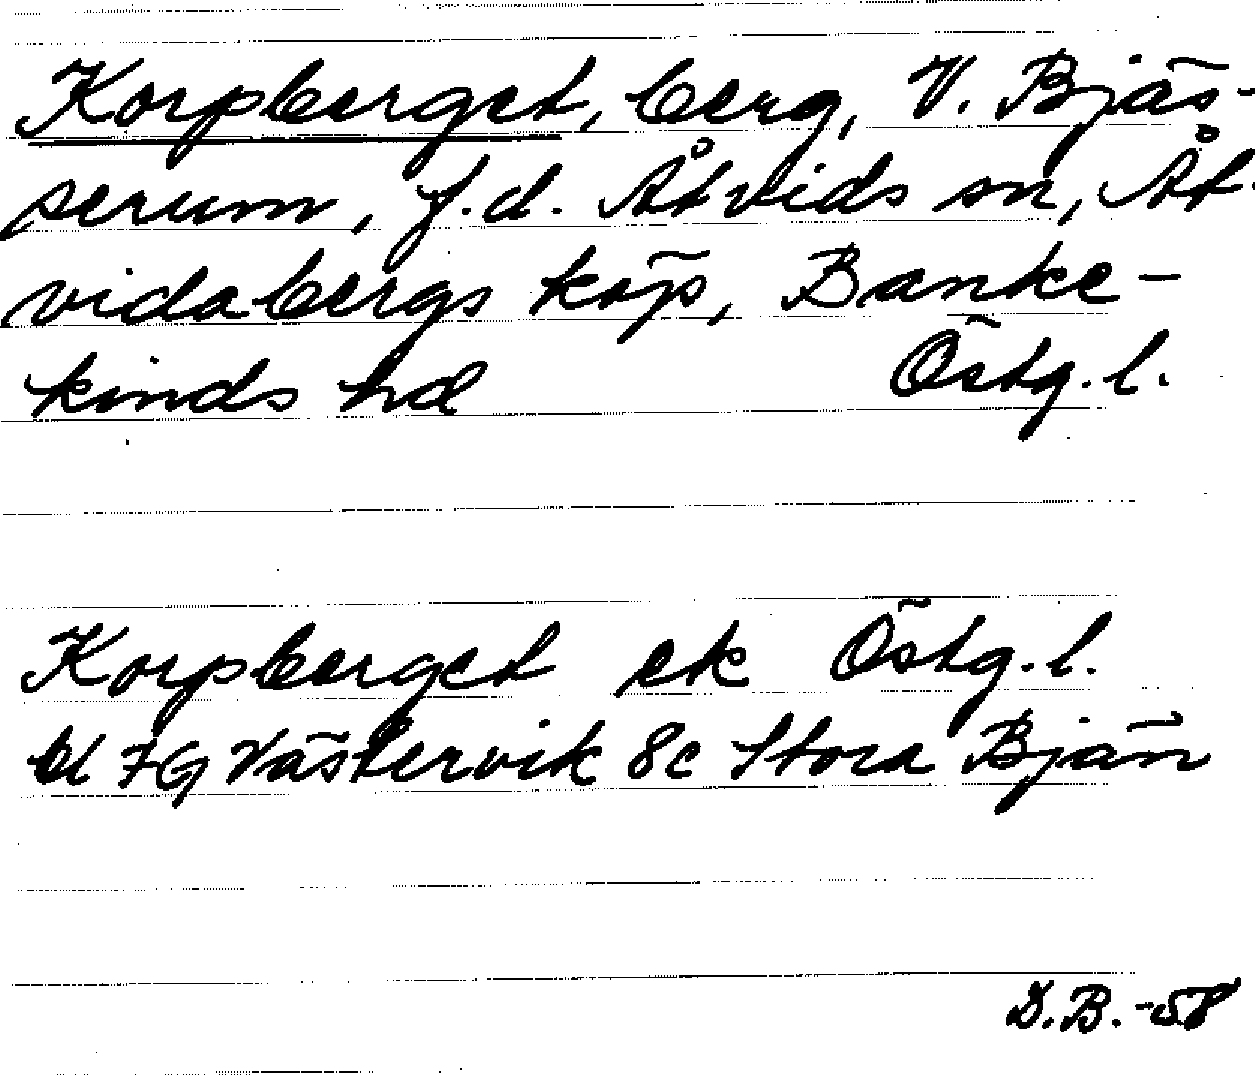 Korpberget, berg, V. Bjäs-
serum, f.d. Åtvids sn, Åt-
vidabergs köp, Banke-
kinds hd Östg. l.
Korpberget ek Östg. l.
bl 7G Västervik 8c Stora Bjän
D.B. -58